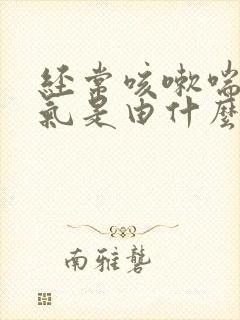 经常咳嗽喘
氣是由什麼
南雅礱